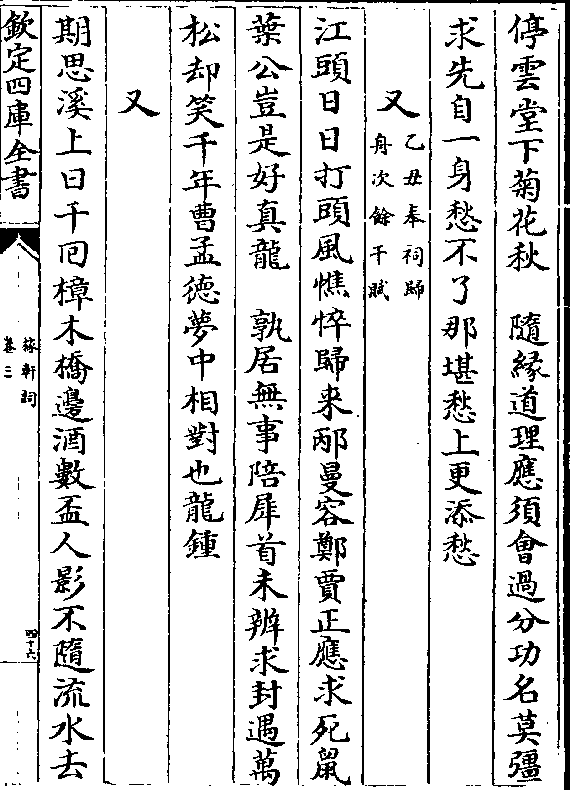 停雲堂下菊花秋　隨緣道理應須會過分功名莫彊
求先自一身愁不了那堪愁上更添愁
又乙丑奉祠歸
舟次餘干賦
江頭日日打頭風憔悴歸来邴曼容鄭賈正應求死鼠
葉公豈是好真龍　孰居無事陪犀首未辨求封遇萬
松却笑千年曹孟德夢中相對也龍鍾
又
期思溪上日千囘樟木橋邊酒數盃人影不隨流水去
欽定四庫全書
稼軒詞
卷三
四十六